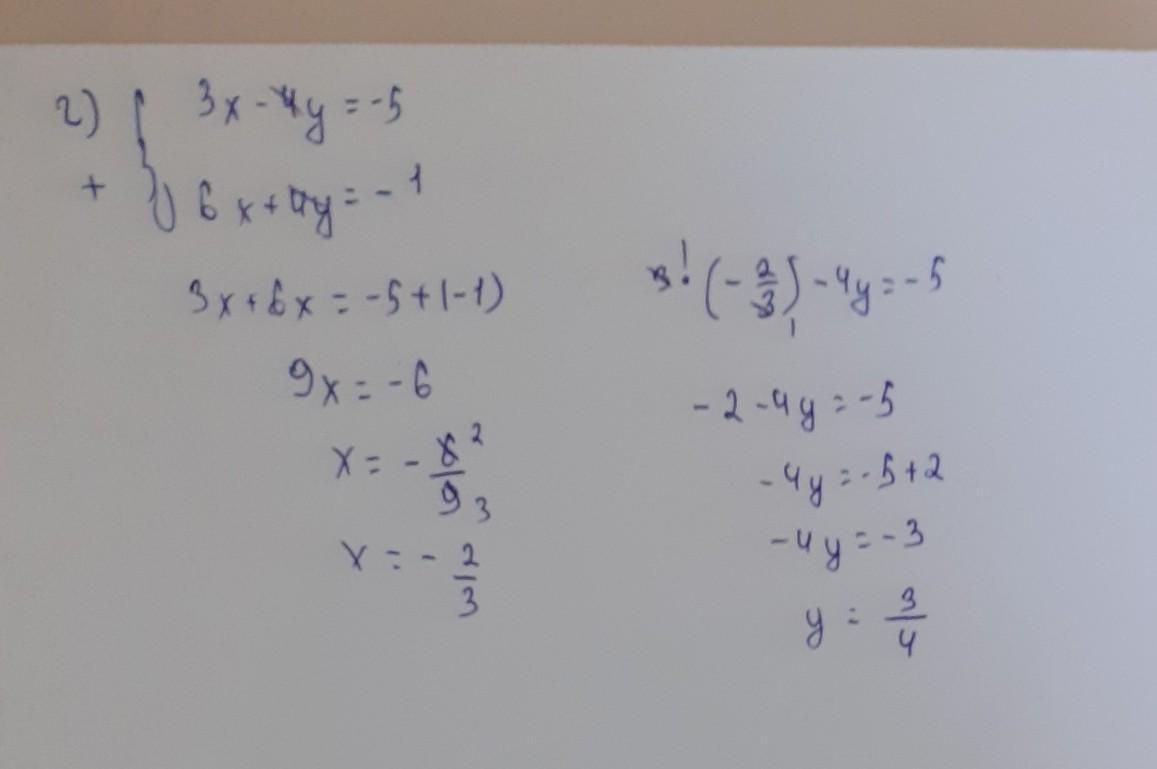 2) { 3x - 4y = -5
+ 6x + 4y = -1
3x + 6x = -5 + (-1)
9x = -6
x = - 6/9 2 3
x = - 2/3
3 1 (- 2/3) - 4y = -5
1
-2 - 4y = -5
-4y = -5 + 2
-4y = -3
y = 3/4